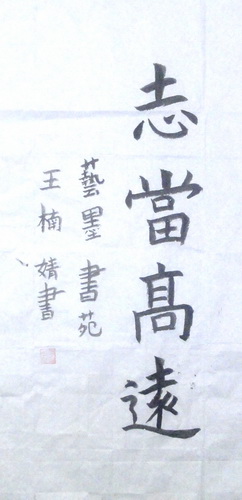 志當高遠
藝墨書苑
王楠婧書